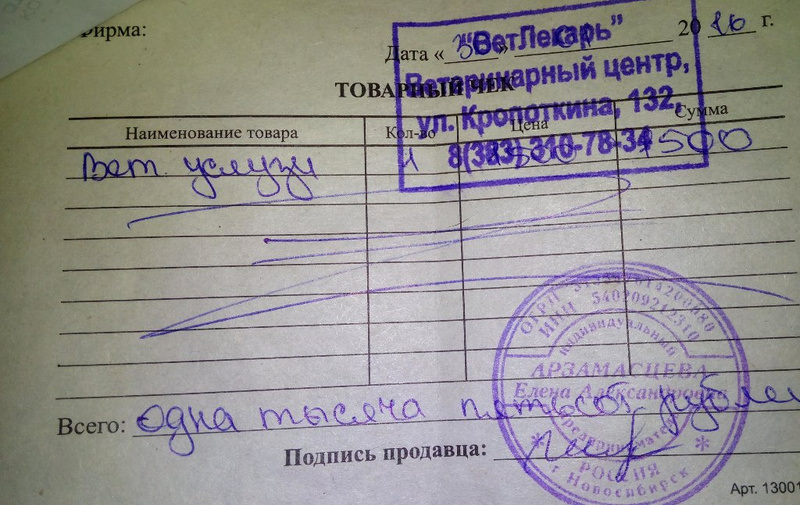 Фирма:
Дата « » 2016 г.
"ВетЛекарь"
Ветеринарный центр,
ул. Кропоткина, 132,
8(383) 310-78-34
ТОВАРНЫЙ ЧЕК
Наименование товара Кол-во Цена Сумма
Вет. услуги 1 1500 1500
ИНН 540209212310
индивидуальный
АРЗАМАСЦЕВА
Елена Александровна
предприниматель
РОССИЯ
г Новосибирск
Всего: одна тысяча пятьсот рублей
Подпись продавца:
Арт. 13001